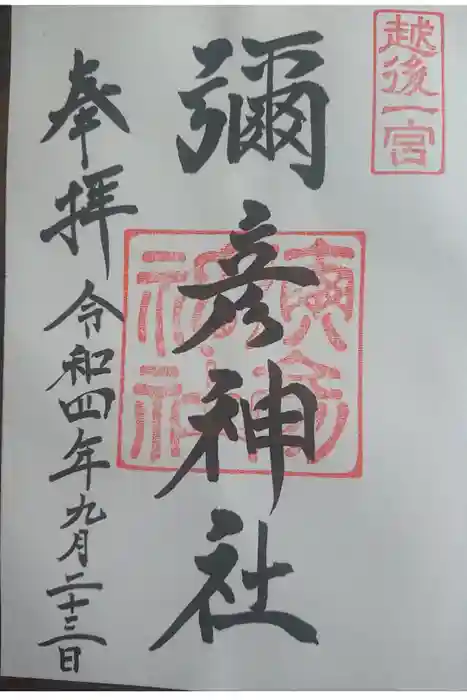 越後一宮
彌彦神社
奉拝
令和四年九月二十三日